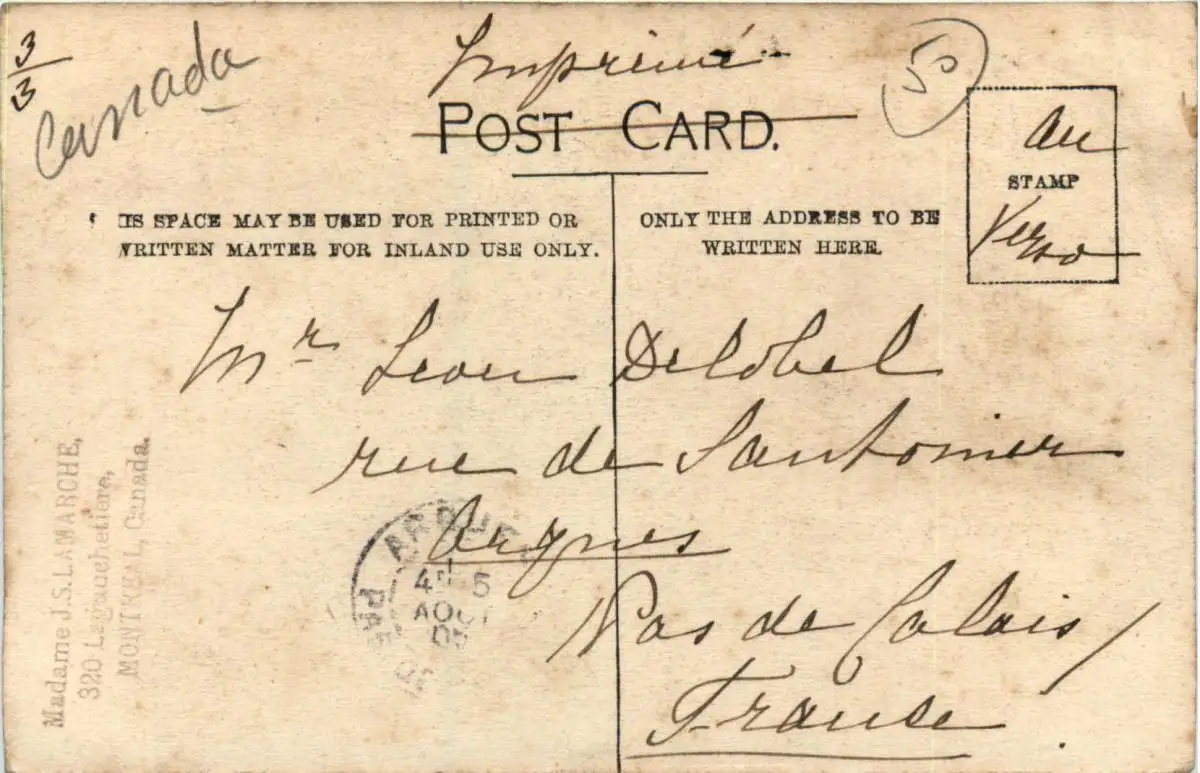 3/3
Canada
Imprimé
50
POST CARD.
Au
STAMP
Verso
IS SPACE MAY BE USED FOR PRINTED OR
WRITTEN MATTER FOR INLAND USE ONLY.
ONLY THE ADDRESS TO BE
WRITTEN HERE.
Mr Leon Delobel
rue de Santomer
Arques
Pas de Calais
France
ARQUES
AOUT
Madame J.S. LAMARCHE,
320 Lagauchetiere,
MONTREAL, Canada.